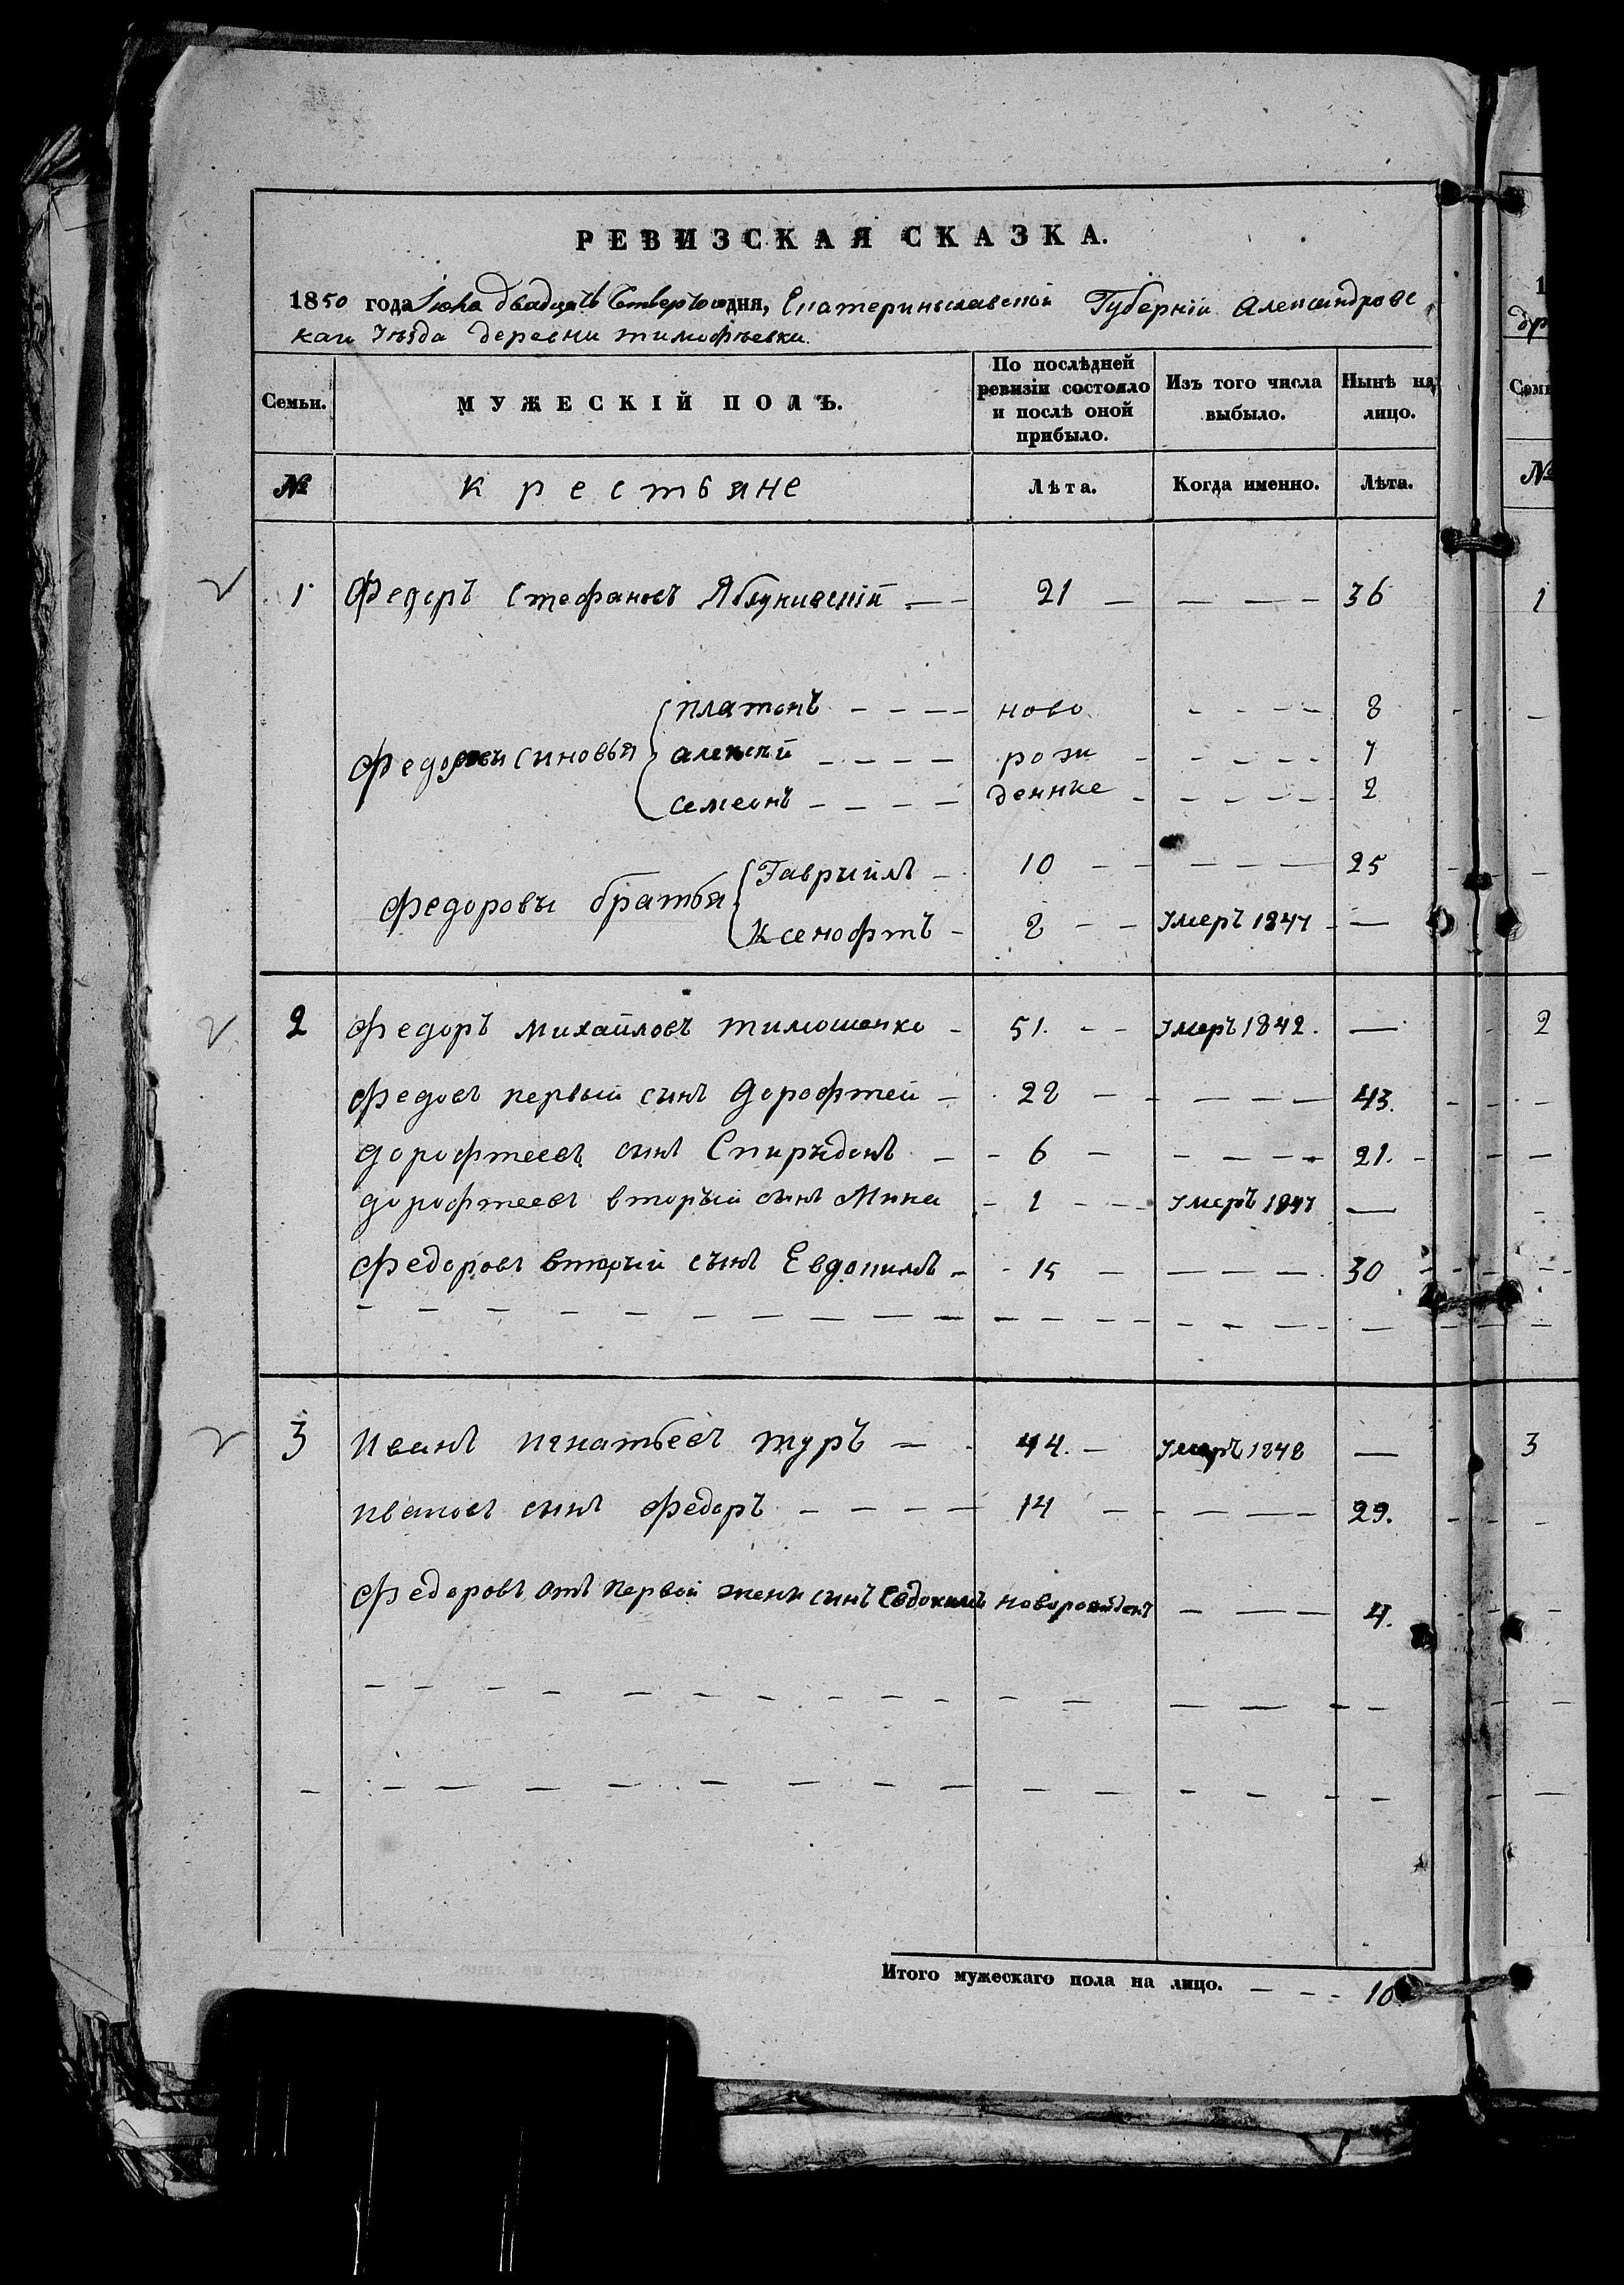 РЕВИЗСКАЯ СКАЗКА.
1850 года Іюня двадцать Четвертого дня, Екатеринославской Губерніи Александровс
каго Уѣзда деревни тимофѣевки.
Семьи. МУЖЕСКІЙ ПОЛЪ. По послѣдней ревизіи состояло и послѣ оной прибыло. Изъ того числа выбыло. Нынѣ на лицо.
№ крестьяне Лѣта. Когда именно. Лѣта.
1 Федоръ Стефановъ Яблуновскій — — 21 — — — — 36
Платонъ — — — — ново — — — — 8
Федоровы синовья Алексѣй — — — — рож — — — — 7
Семеонъ — — — — денние — — — — 2
Гаврыйлъ — 10 — — — — — 25
Федоровы братья
Ксенофтъ — 2 — — Умеръ 1847 — —
2 Федоръ Михайловъ тимошенко — 51. — — Умеръ 1842. —
Федоръ первый сынъ Дорофтей — 28 — — — — — 43.
Дорофтеевъ сынъ Спирыдонъ — — 6 — — — — — 21.
Дорофтеевъ вторый сынъ Мина — 1 — — Умеръ 1847 —
Федоровъ вторый сынъ Евдокимъ — — 15 — — — — 30
3 Иванъ Игнатьевъ туръ — 44. — Умеръ 1848 —
Ивановъ сынъ Федоръ — — — — 14 — — — — 29.
Федоровъ отъ Первой жени синъ Евдокимъ новорожденъ — — — 4.
Итого мужескаго пола на лицо. — — — 10
1
др
Семь
№
1
2
3